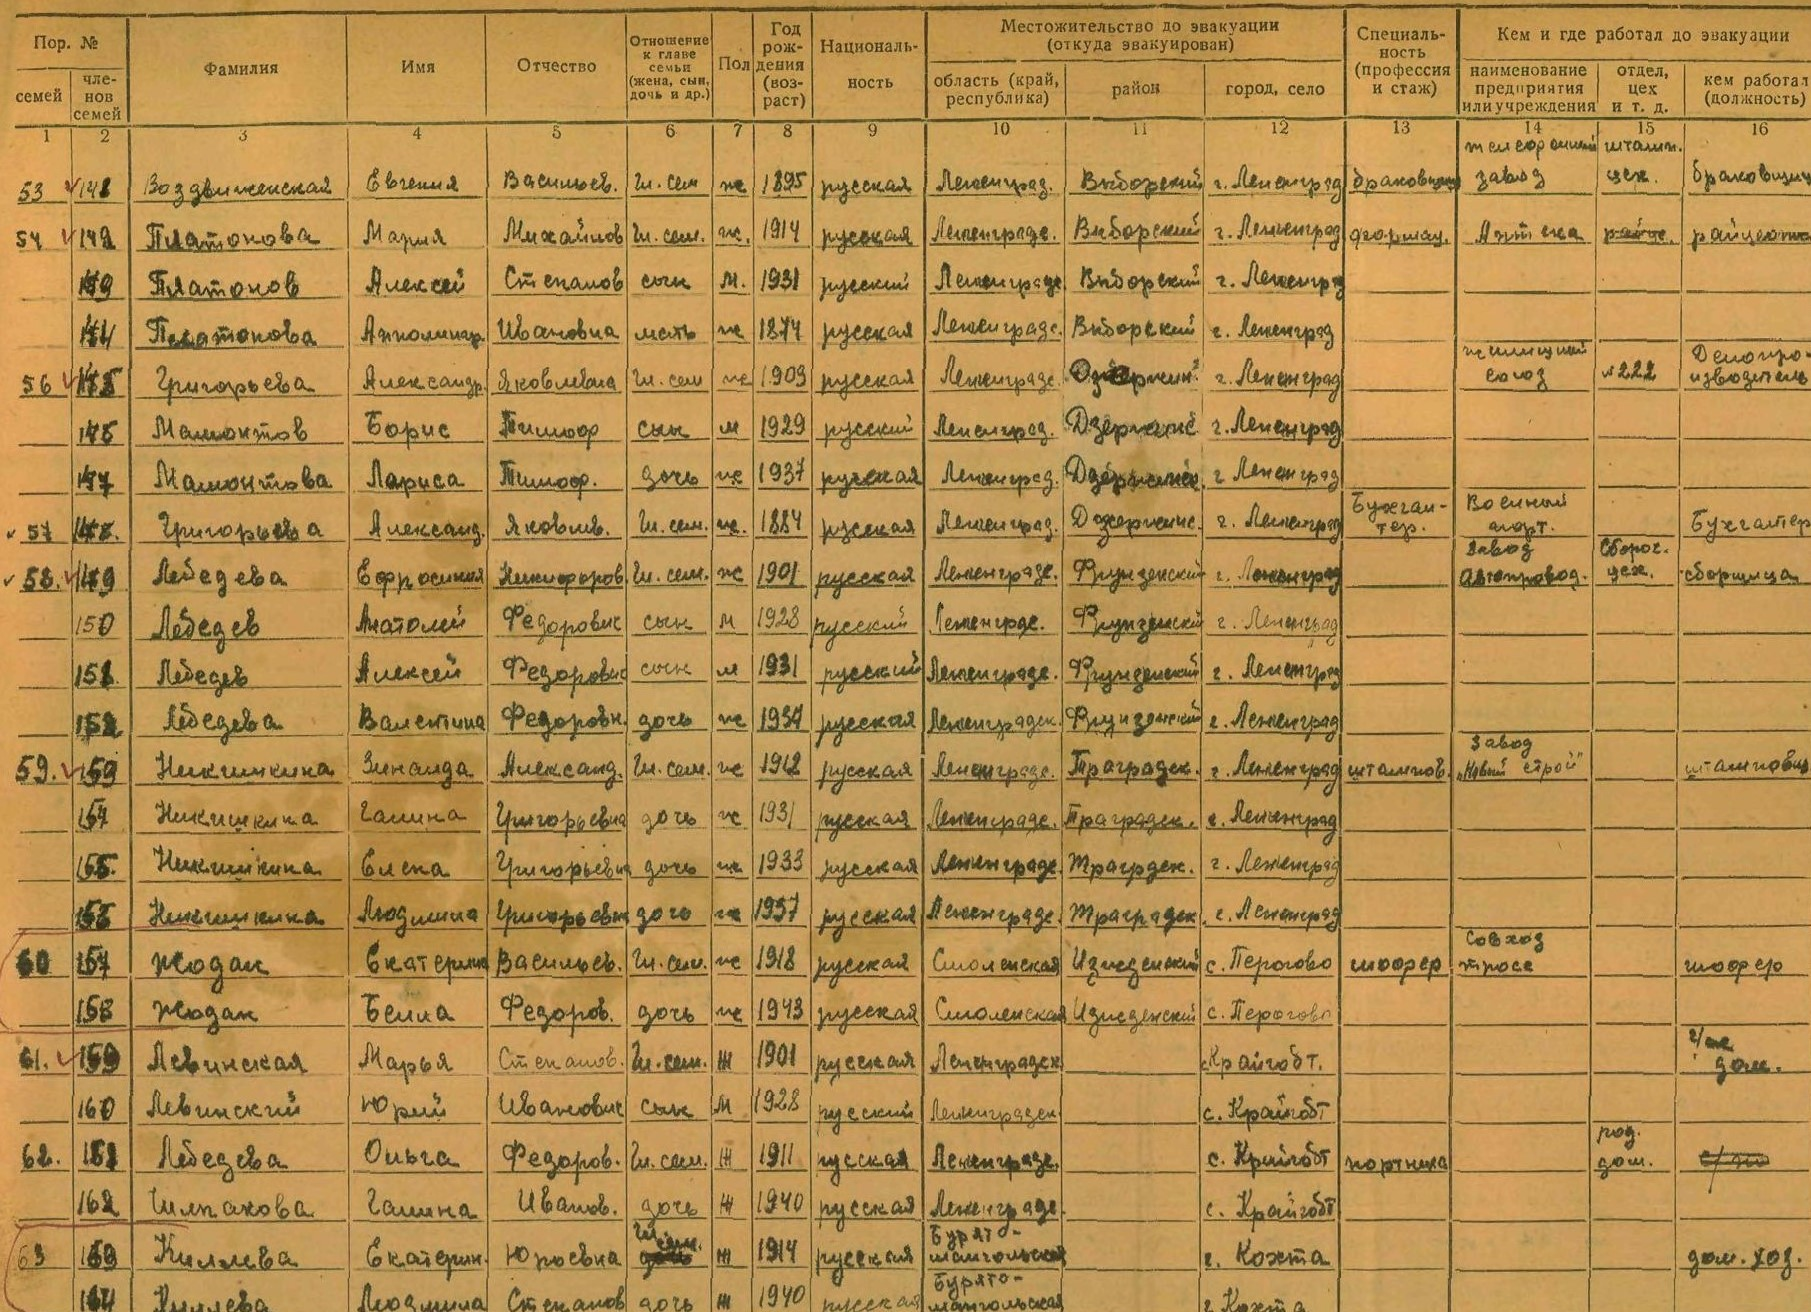 Пор. № Фамилия Имя Отчество Отношение к главе семьи (жена, сын, дочь и др.) Пол Год рождения (возраст) Национальность Местожительство до эвакуации (откуда эвакуирован) Специальность (профессия и стаж) Кем и где работал до эвакуации
семей членов семей область (край, республика) район город, село наименование предприятия или учреждения отдел, цех и т. д. кем работал (должность)
1 2 3 4 5 6 7 8 9 10 11 12 13 14 15 16
53 148 Воздвиженская Евгения Васильев. Гл. сем ж 1895 русская Ленинград. Выборский г. Ленинград завод цех.
54 149 Платонова Мария Михайлов Гл. сем. ж. 1914 русская Ленинградс. Выборский г. Ленинград фармац. Аптека
Платонов Алексей Степанов сын М. 1931 русский Ленинградс Выборский г. Ленингрд
Платонова Ивановна мать ж 1874 русская Ленинградс. Выборский г. Ленинград
56 Григорьева Александр. Яковлевна Гл. сем ж 1909 русская Ленинградс. г. Ленинград союз №222 Делопроизводитель
Мамонтов Борис Тимоф сын м 1929 русский Ленинград. г. Ленинград
Мамонтова Лариса Тимоф. дочь ж 1937 русская Ленинград. г Ленинград
57 Григорьева Александ. Яковлев. Гл. сем. ж. 1884 русская Ленинград. Джержинс. г. Ленинград Бухгалтер. Военный Бухгалтер
58. 149 Лебедева Ефросиния Никифоров. Гл. сем. ж 1901 русская Ленинградс. Фрунзенский г. Ленинград завод Автопровод. Сбороч. цех. сборщица
150 Лебедев Анатолий Федорович сын м 1928 русский Ленинградс. Фрунзенский г. Ленинград
151. Лебедев Алексей Федорович сын м 1931 русский Ленинградс. Фрунзенский г. Ленинград
152 Лебедева Валентина Федоровн. дочь ж 1937 русская Ленинградск. Фрунзенский г. Ленинград
59. 153 Никишкина Зинаида Александ. Гл. сем. ж 1912 русская Ленинградс. г. Ленинград штампов. Завод „Новый строй"
154 Никишкина Галина Григорьевна дочь ж 1931 русская Ленинградс. г. Ленинград
155. Никишкина Елена Григорьевна дочь ж 1933 русская Ленинградс. г. Ленинград
156 Никишкина Людмила Григорьевн дочь ж 1937 русская Ленинградс. г. Ленинград
60 157 Жодан Екатерина Васильев. Гл. сем. ж 1918 русская Смоленская Издеденский с. Перогово шофер Совхоз шофер
158 Жодан Белла Федоров. дочь ж 1943 русская Смоленская Издеденский с. Перогово
61. 159 Левинская Марья Степанов. Гл. сем. Ж 1901 русская Ленинградск с Крайгобт. дом.
160 Левинский Юрий Иванович сын М 1928 русский Ленинградск с. Крайгобт
62. 161 Лебедева Ольга Федоров. Гл. сем. Ж 1911 русская Ленинградс. с. Крайгобт портниха род. дом.
162 Чилпакова Галина Иванов. дочь Ж 1940 русская Ленинградс. с. Крайгобт
63 163 Киллева Екатерин. Юрьевна Гл. сем. Ж 1914 русская Бурято-монгольская г. Кохта дом. хоз.
164 Киллева Людмила Степанов дочь Ж 1940 русская Бурято-монгольская г. Кохта